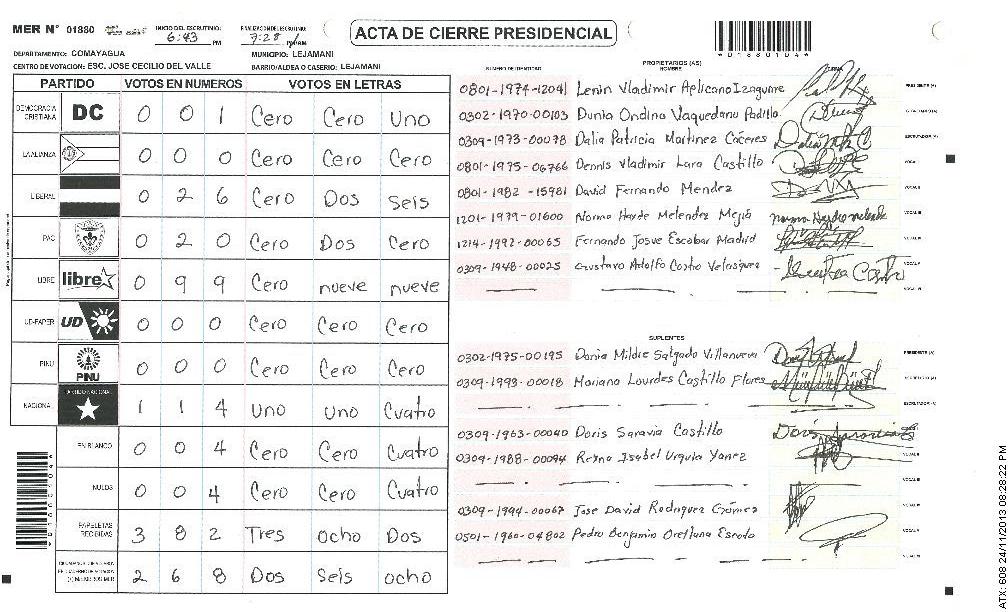 MER N° 01880 INICIO DEL ESCRUTINIO: 6:43 PM FINALIZACION DEL ESCRUTINIO: 7:28 PM
ACTA DE CIERRE PRESIDENCIAL
*01880104*
DEPARTAMENTO: COMAYAGUA MUNICIPIO: LEJAMANI
CENTRO DE VOTACION: ESC. JOSE CECILIO DEL VALLE BARRIO/ALDEA O CASERIO: LEJAMANI
PARTIDO VOTOS EN NUMEROS VOTOS EN LETRAS
DEMOCRACIA CRISTIANA DC 0 0 1 Cero Cero Uno
LA ALIANZA 0 0 0 Cero Cero Cero
LIBERAL 0 2 6 Cero Dos Seis
PAC 0 2 0 Cero Dos Cero
LIBRE libre 0 9 9 Cero nueve nueve
UD-FAPER UD 0 0 0 Cero Cero Cero
PINU PINU 0 0 0 Cero Cero Cero
NACIONAL PARTIDO NACIONAL 1 1 4 Uno Uno Cuatro
EN BLANCO 0 0 4 Cero Cero Cuatro
NULOS 0 0 4 Cero Cero Cuatro
PAPELETAS RECIBIDAS 3 8 2 Tres ocho Dos
2 6 8 Dos Seis ocho
PROPIETARIOS (AS)
NUMERO DE IDENTIDAD NOMBRE
0801-1974-12041 Lenin Vladimir Aplicano Izaguirre PRESIDENTE (A)
0302-1970-00103 Dunia Ondina Vaquedano Padilla SECRETARIO (A)
0309-1973-00078 Dalia Patricia Martinez Cáceres ESCRUTADOR (A)
0801-1975-06766 Dennis Vladimir Lara Castillo VOCAL I
0801-1982-15981 David Fernando Mendez VOCAL II
1201-1979-01600 Norma Hayde Melendez Mejia VOCAL III
1214-1992-00065 Fernando Josue Escobar Madrid
0309-1948-00025 Gustavo Adolfo Castro Velasquez VOCAL V
SUPLENTES
0302-1975-00195 Dania Mildre Salgado Villanueva PRESIDENTE (A)
0309-1993-00018 Mariano Lourdes Castillo Flores SECRETARIO (A)
ESCRUTADOR (A)
0309-1963-00040 Doris Saravia Castillo
0309-1988-00094 Reyna Isabel Urquia Yanez
0309-1994-00067 Jose David Rodriguez Gómez
0501-1960-04802 Pedro Benjamin Orellana
ATX: 608 24/11/2013 08:28:22 PM